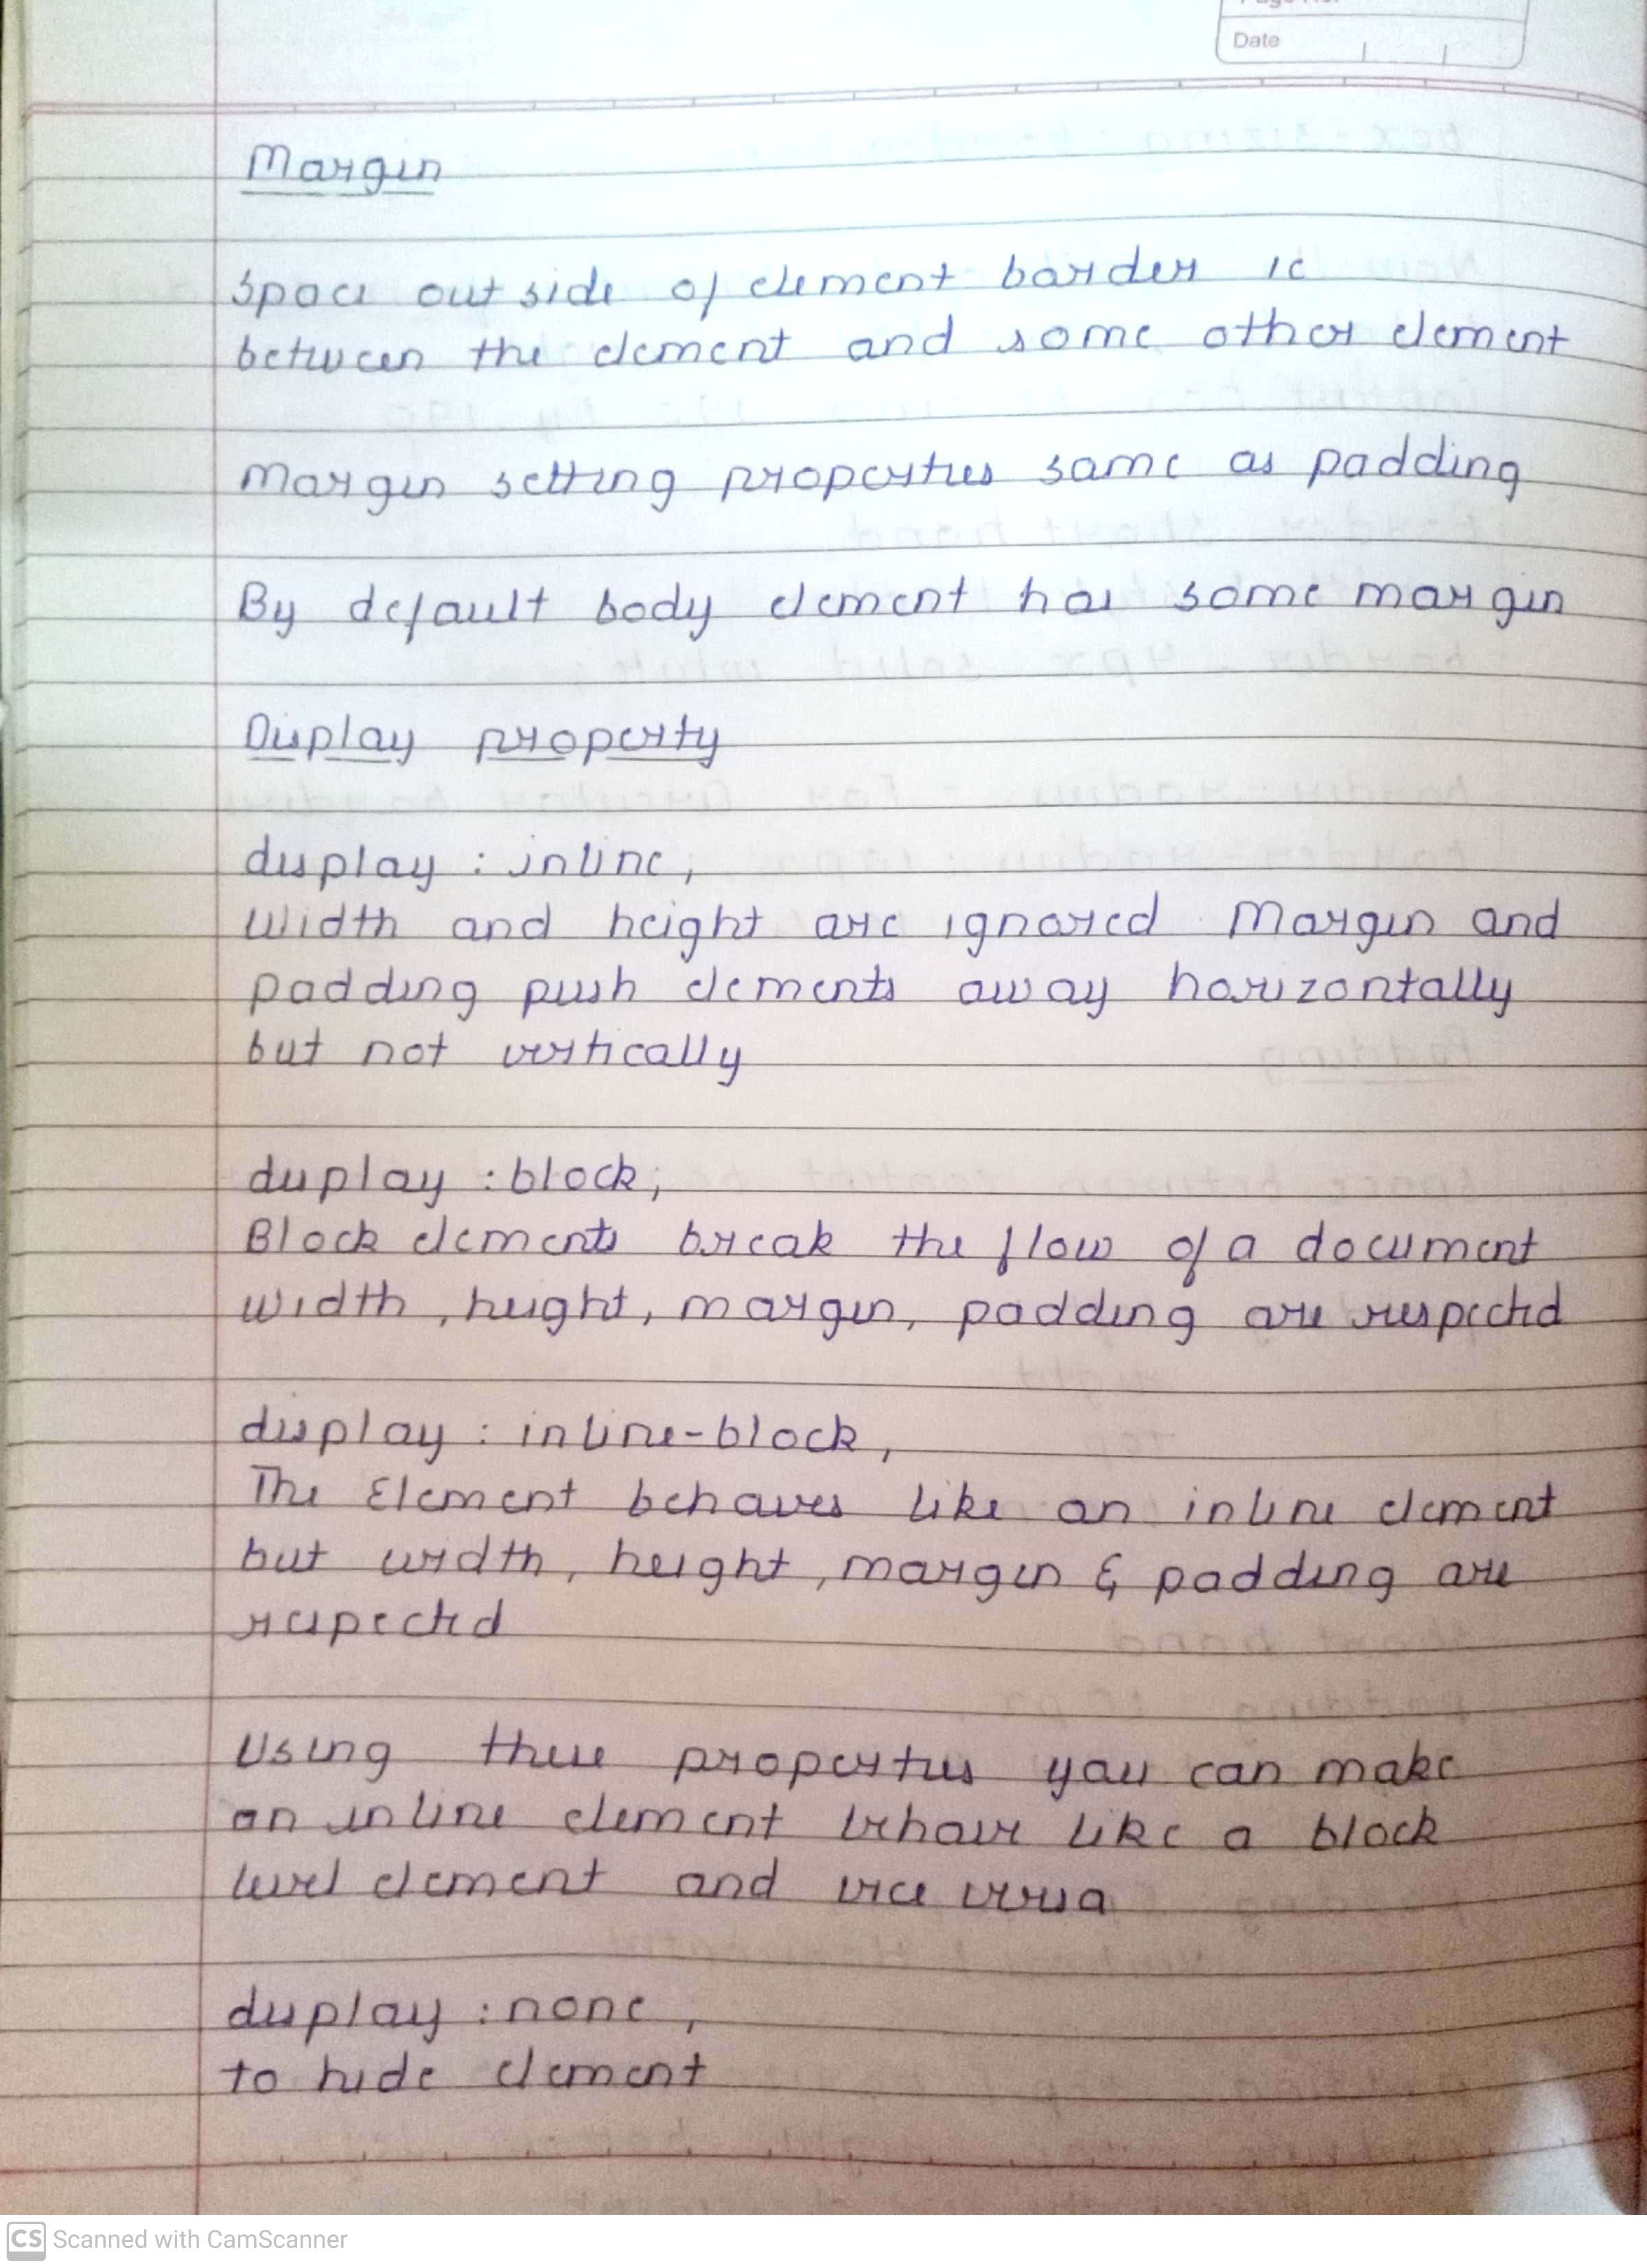 Date
Margin
Space outside of element border ie
between the element and some other element
Margin setting properties same as padding
By default body element has some margin
Display property
display : inline;
Width and height are ignored. Margin and
padding push elements away horizontally
but not vertically
display : block;
Block elements break the flow of a document
width, height, margin, padding are respected
display : inline-block;
The Element behaves like an inline element
but width, height, margin & padding are
respected
Using these properties you can make
an inline element behave like a block
level element and vice versa
display : none;
to hide element
CS Scanned with CamScanner